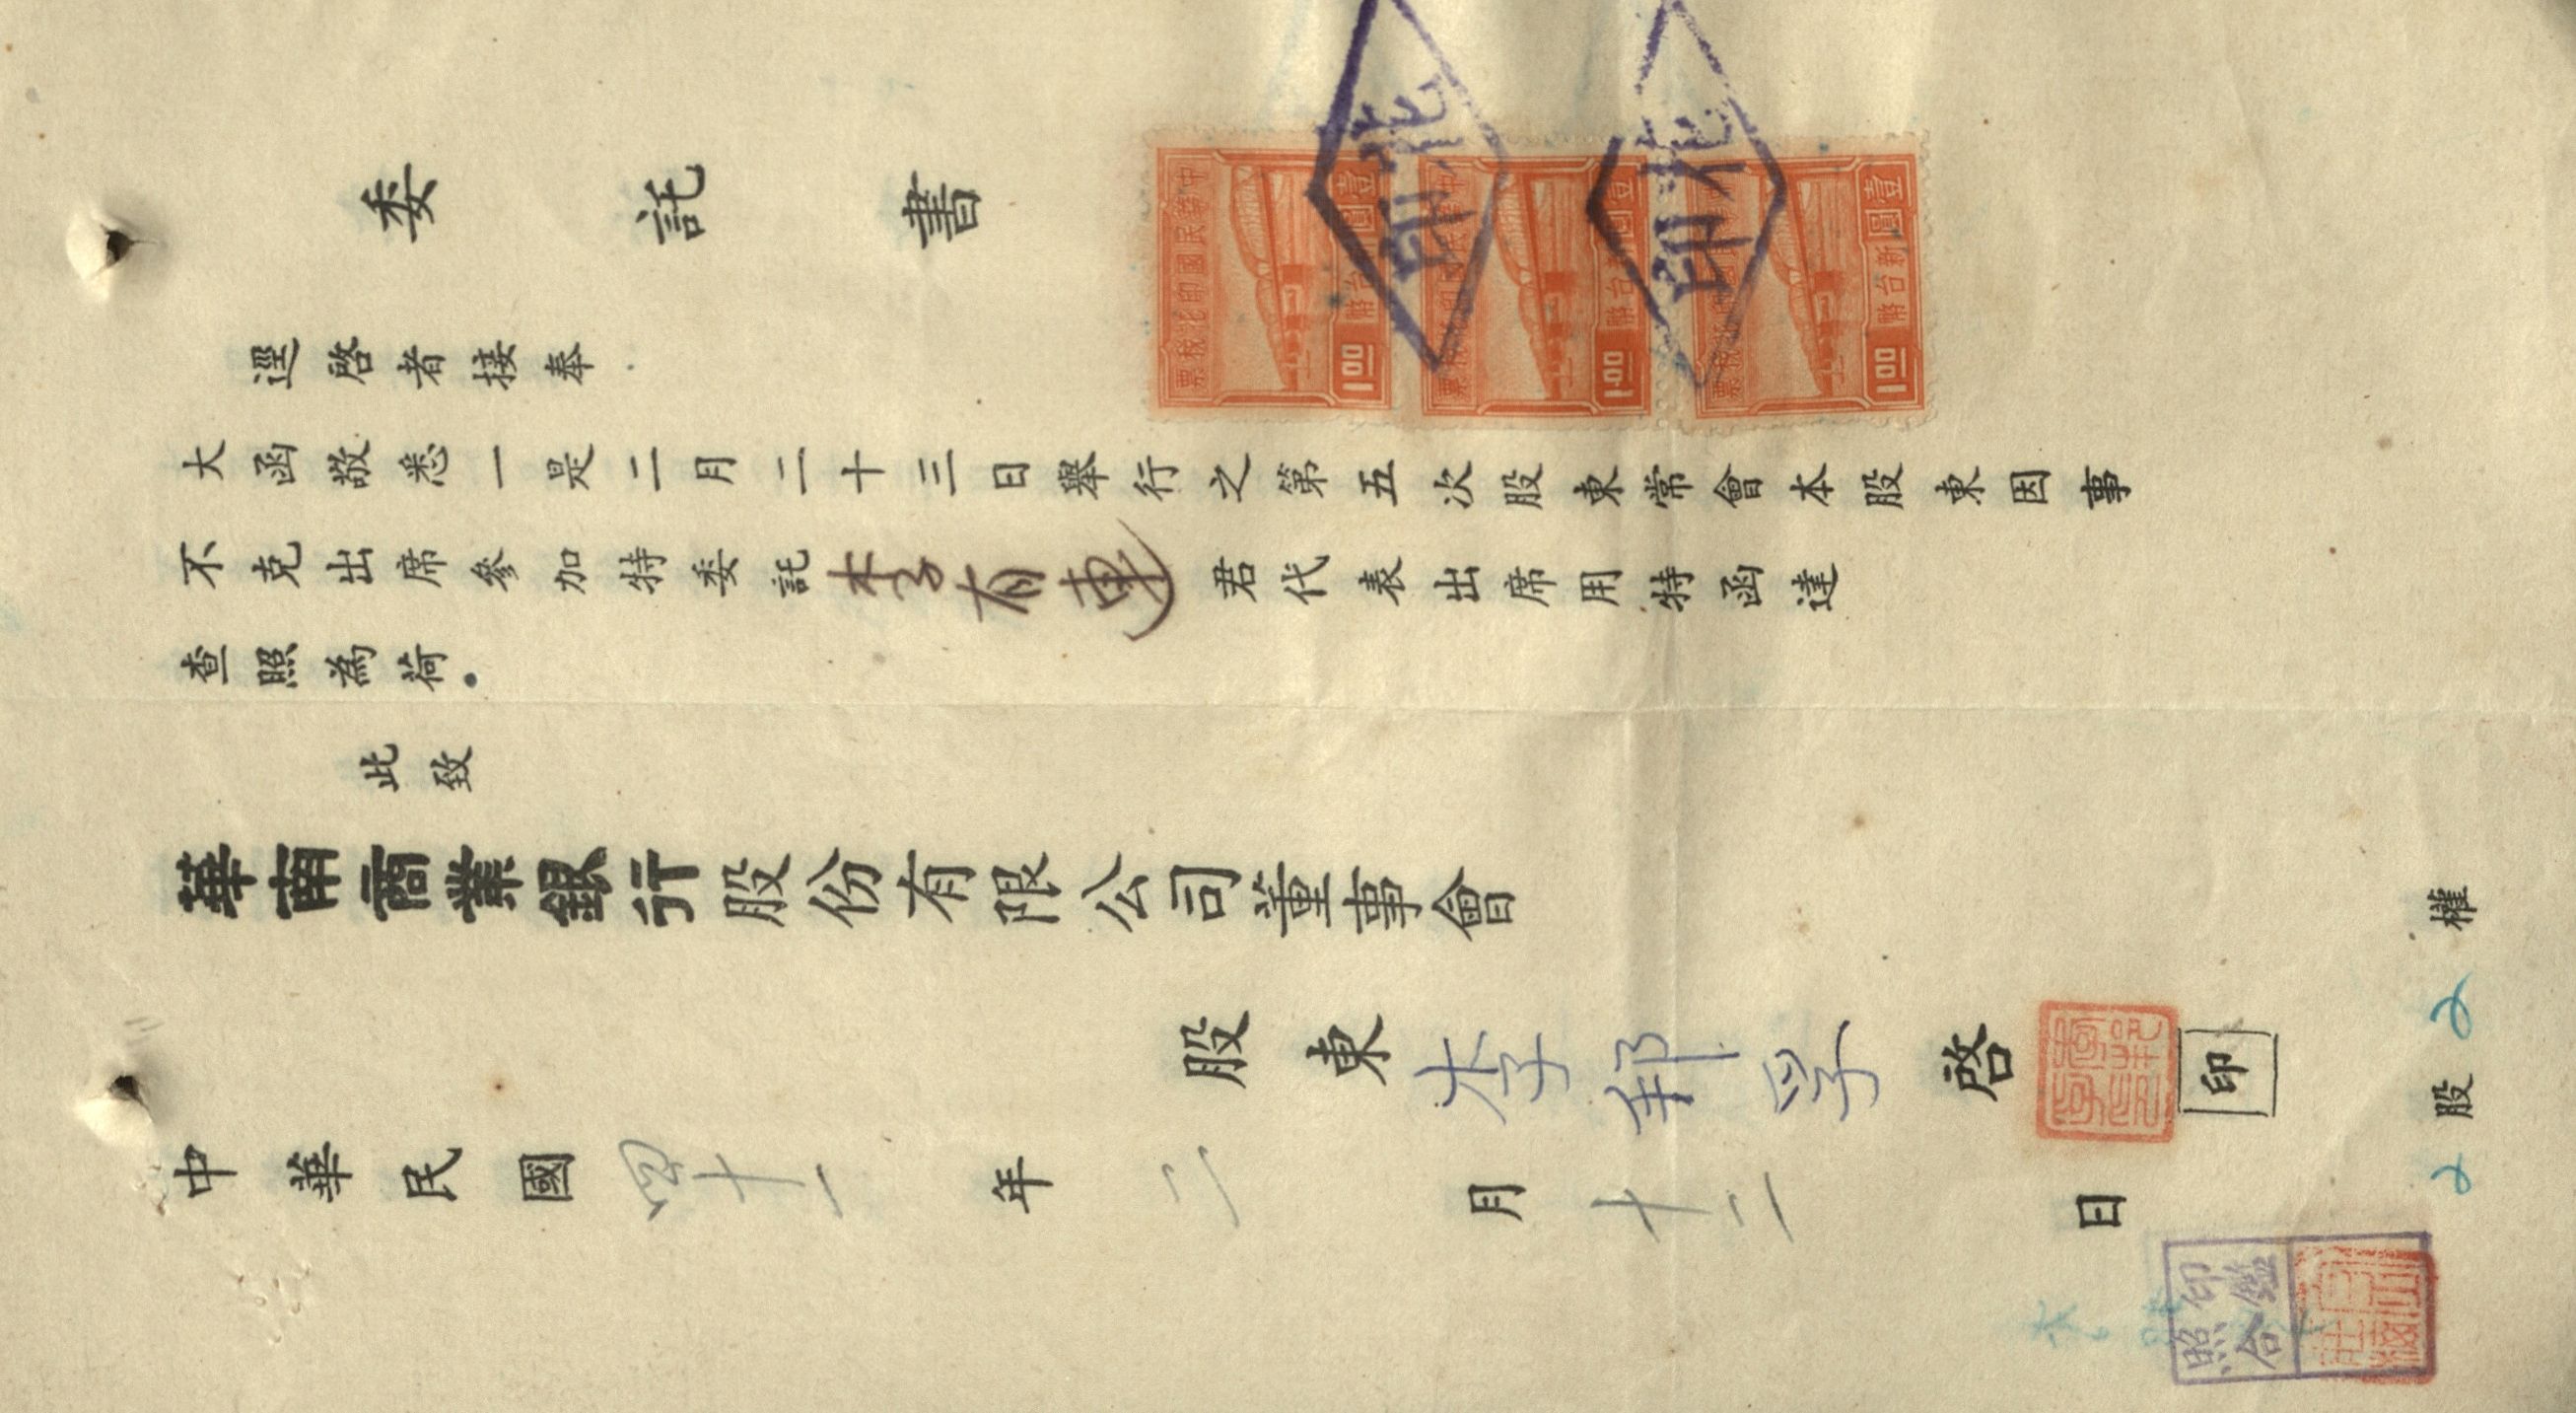 委託書
逕啓者接奉
大函敬悉一是二月二十三日舉行之第五次股東常會本股東因事
不克出席參加特委託李有連君代表出席用特函達
查照為荷。
此致
華南商業銀行股份有限公司董事會
股東李邦孚啓
印
中華民國四十一年二月十二日
2股2權
印鑑
照合
中華民國印花稅票
壹圓
新台幣
1.00
壹圓
新台幣
1.00
壹圓
新台幣
1.00